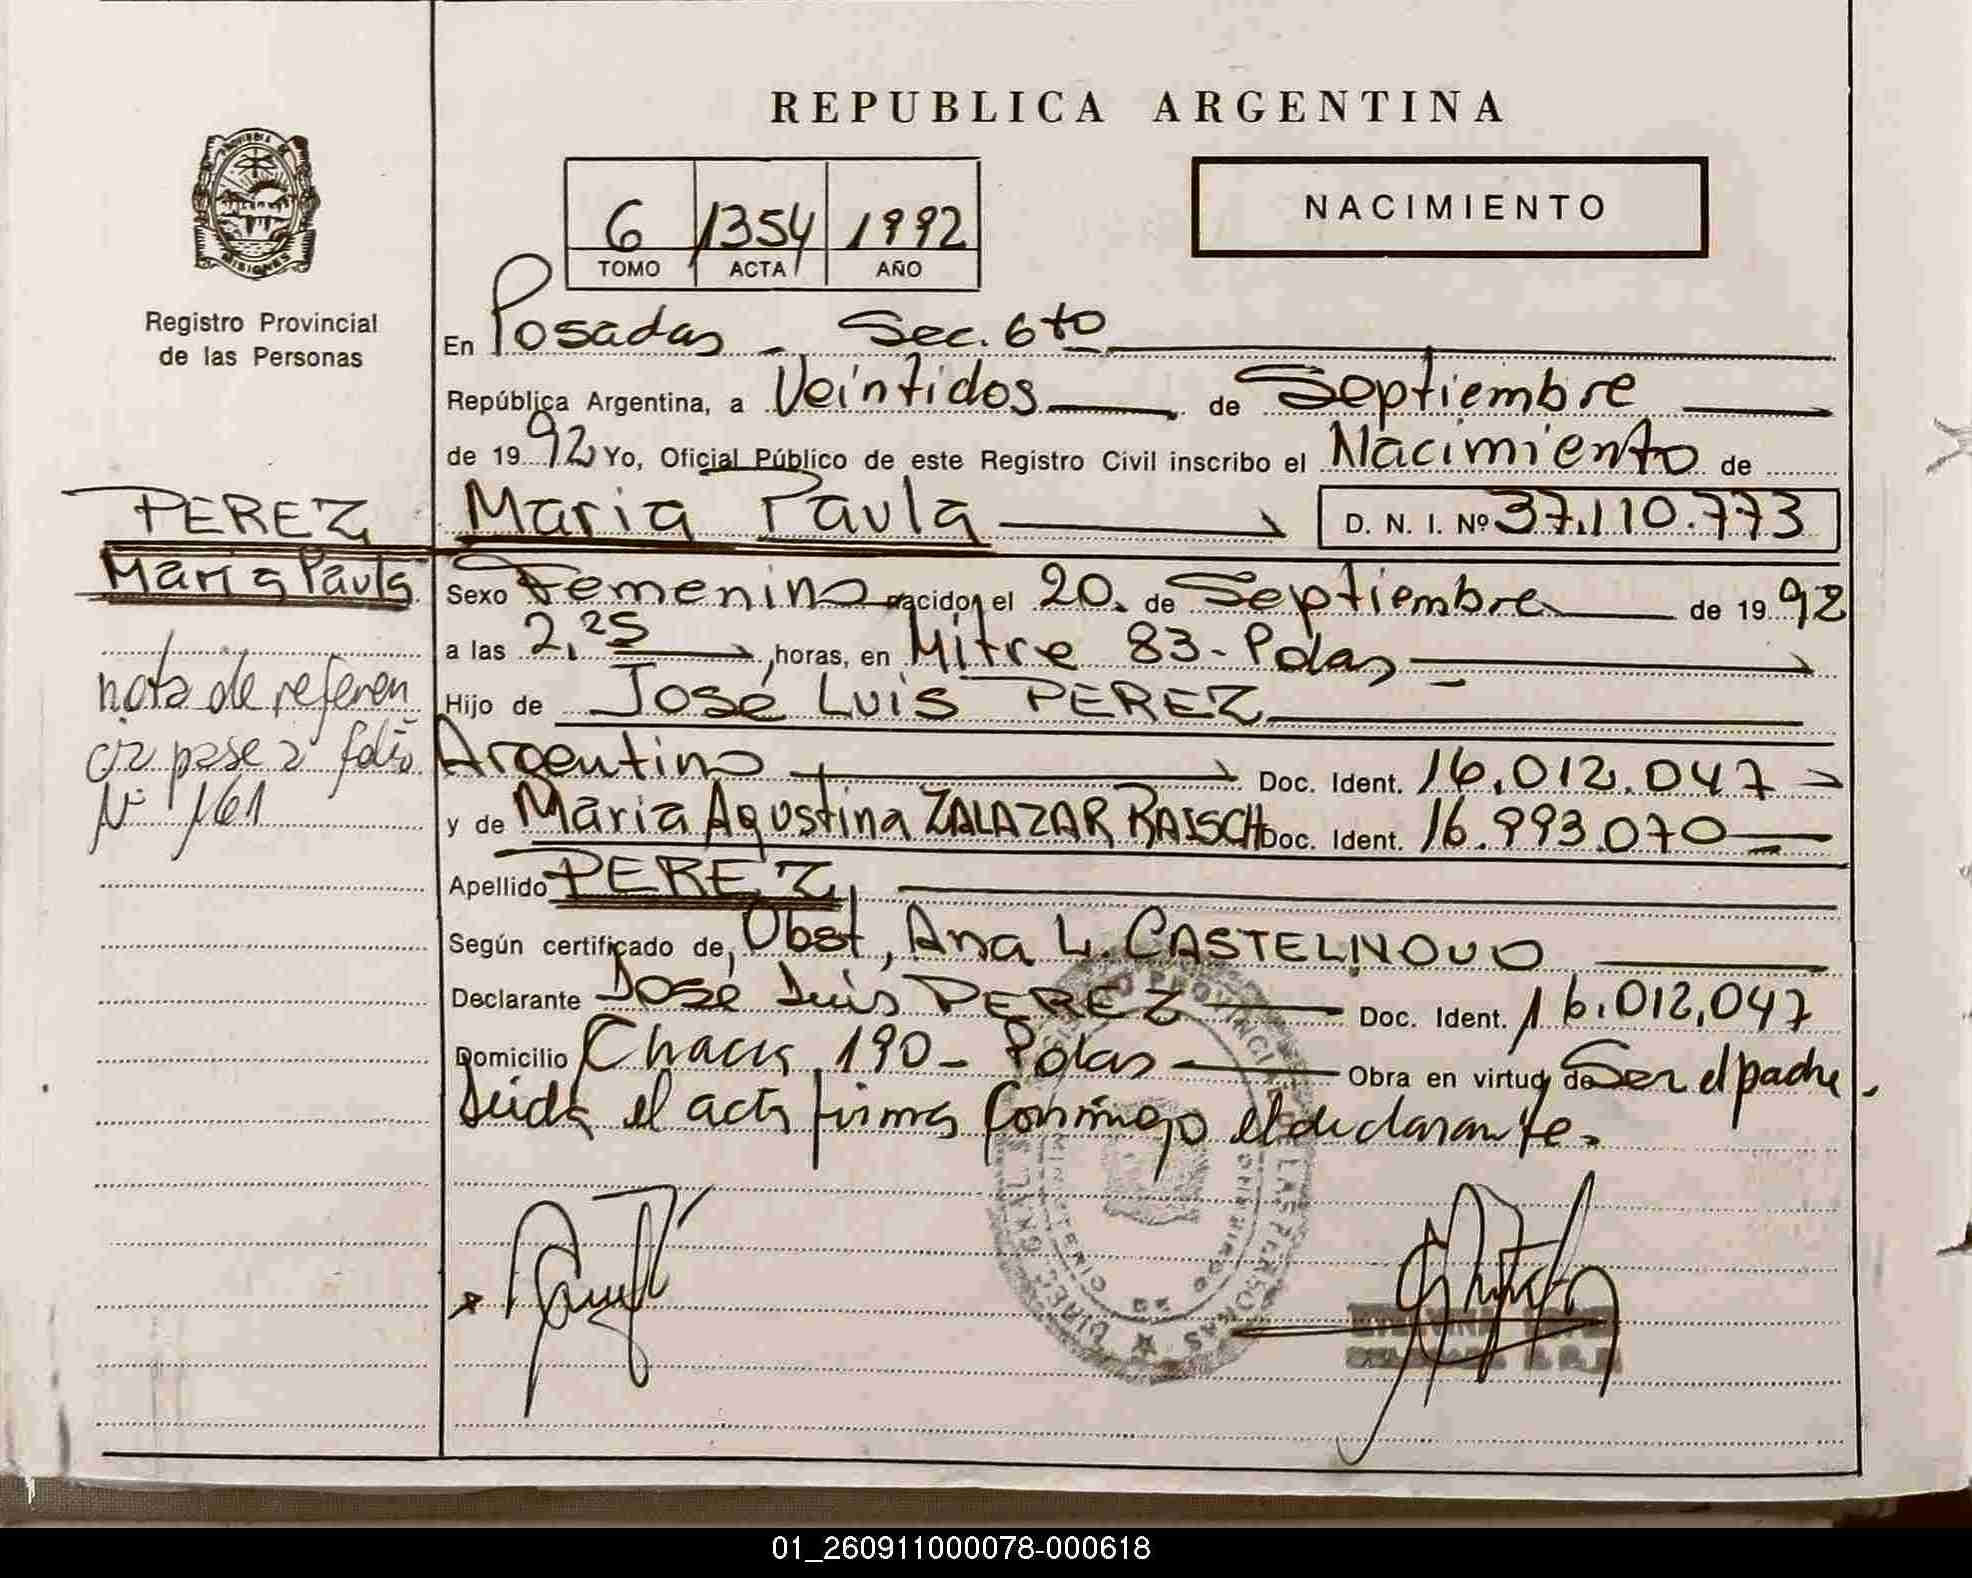 REPUBLICA ARGENTINA
PROVINCIA DE MISIONES
6 1354 1992
TOMO ACTA AÑO
NACIMIENTO
Registro Provincial
de las Personas
En Posadas - Sec. 6to
República Argentina, a Veintidos de Septiembre
de 1992 Yo, Oficial Público de este Registro Civil inscribo el Nacimiento de
PEREZ
Maria Paula
Maria Paula D. N. I. Nº 37.110.773
Sexo Femenino nacido el 20. de Septiembre de 1992
a las 2,25 horas, en Mitre 83 - Pdas
Hijo de José Luis PEREZ
nota de referen
cia pase a folio
Nº 161
Argentino Doc. Ident. 16.012.047
y de Maria Agustina ZALAZAR RAISCH Doc. Ident. 16.993.070
Apellido PEREZ
Según certificado de, Obst, Ana L. CASTELNOVO
Declarante José Luis PEREZ Doc. Ident. 16.012.047
Domicilio Chacus 190 - Pdas Obra en virtud de Ser el padre.
Leida el acta firma conmigo el declarante.
01_260911000078-000618